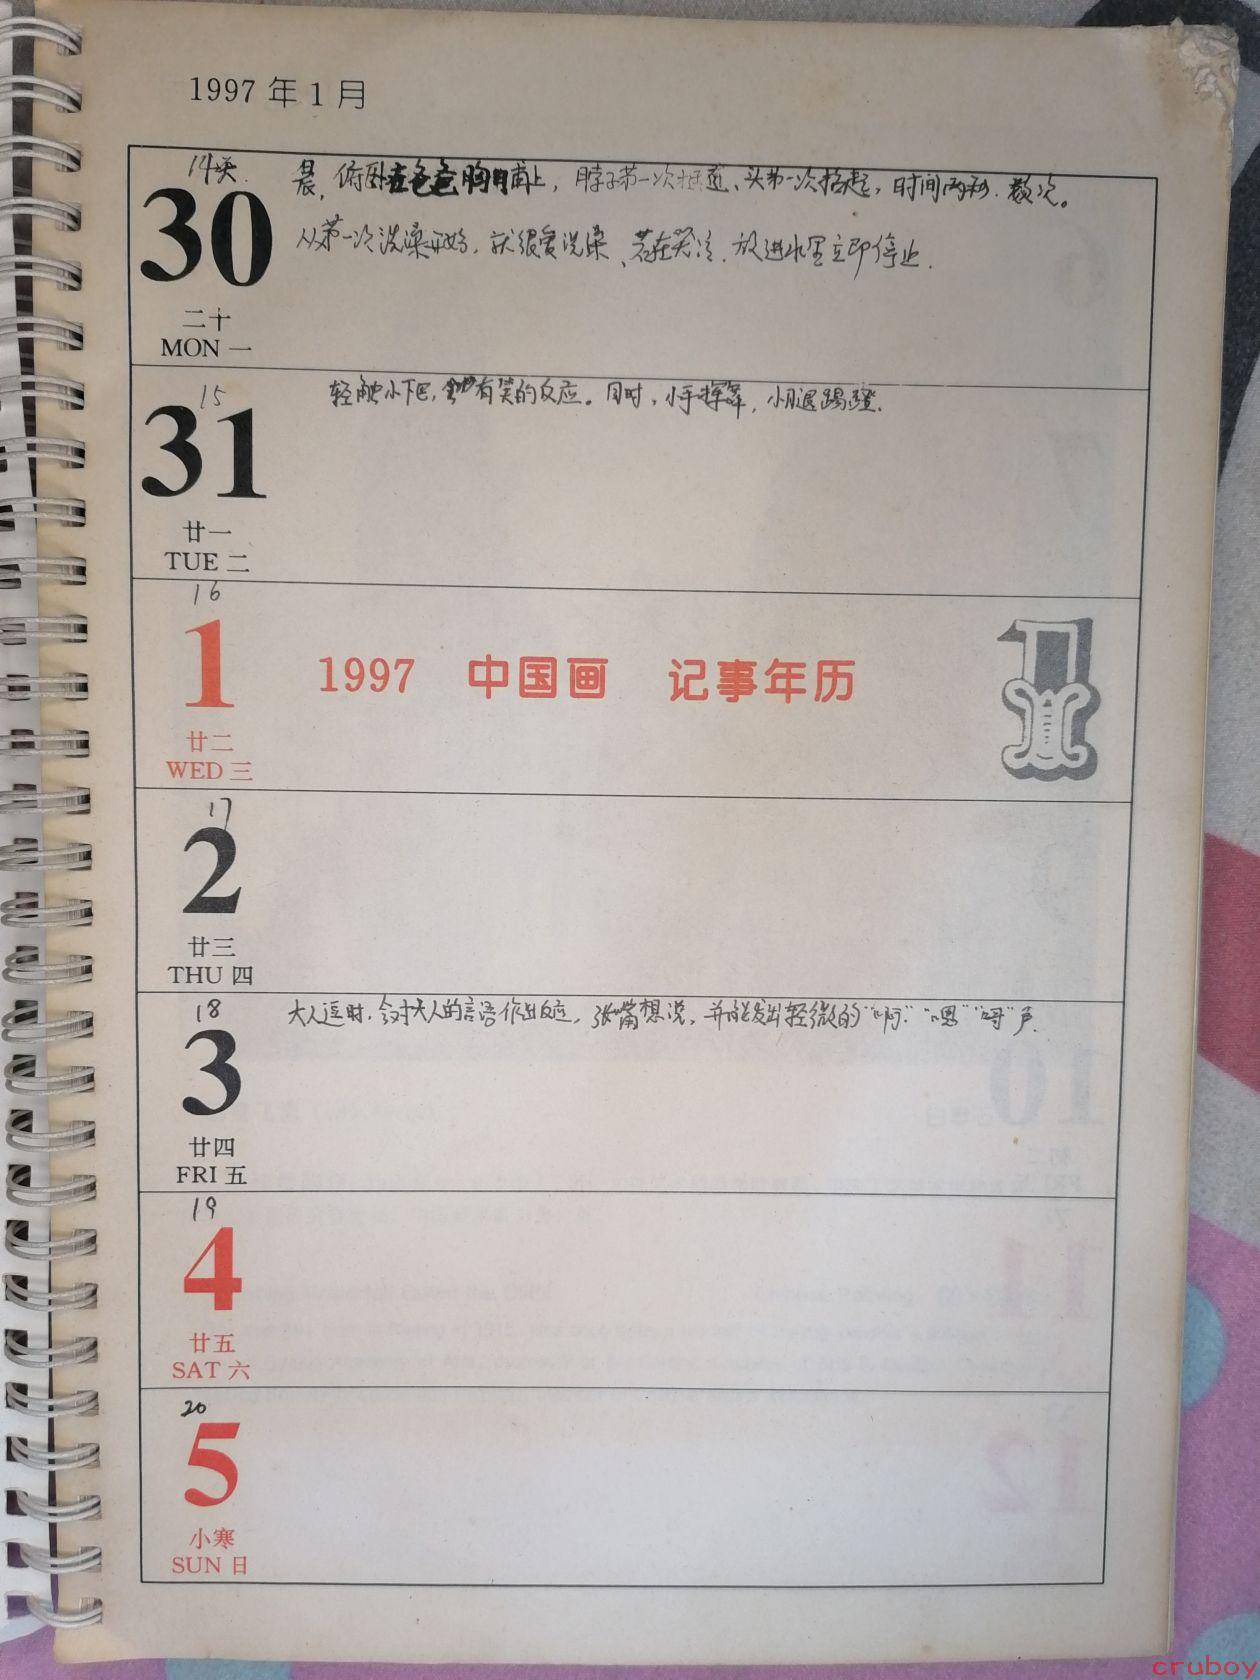 1997 年 1 月
14天.
30
二十
MON 一
晨, 俯卧在爸爸胸脯上, 脖子第一次挺直、头第一次抬起, 时间两秒. 数次。
从第一次洗澡开始, 就很爱洗澡、若在哭泣. 放进水里立即停止.
15
31
廿一
TUE 二
轻触小下巴, 她有笑的反应。同时, 小手挥舞, 小腿踢蹬.
16
1
廿二
WED 三
1997 中国画 记事年历
1
17
2
廿三
THU 四
18
3
廿四
FRI 五
大人逗时, 会对大人的言语作出反应, 张嘴想说, 并能发出轻微的“啊”“嗯”“呀”声.
19
4
廿五
SAT 六
20
5
小寒
SUN 日
cruboy